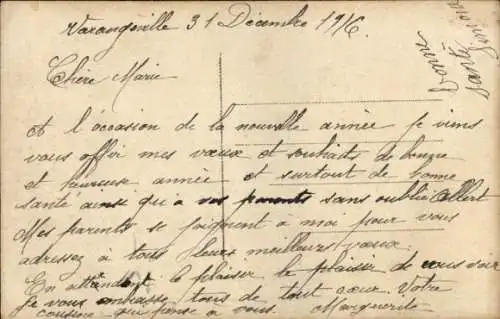 Varangéville 31 Décembre 1916.
Chère Marie
A l'occasion de la nouvelle année je viens
vous offrir mes vœux et souhaits de bonne
et heureuse année et surtout de bonne
santé ainsi qu'à vos parents sans oublier Albert
Mes parents se joignent à moi pour vous
adressez à tous leurs meilleurs vœux.
En attendant le plaisir le plaisir de vous voir
Je vous embrasse tous de tout cœur. Votre
cousine qui pense à vous. Marguerite